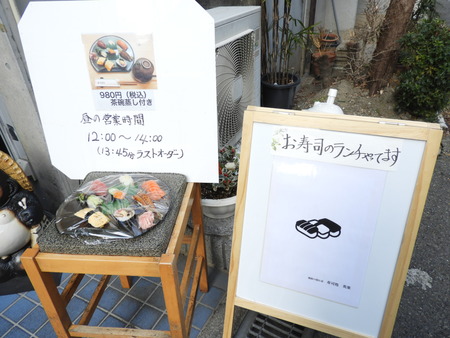 980円(税込)
茶碗蒸し付き
昼の営業時間
12:00〜14:00
(13:45分ラストオーダー)
お寿司のランチやてます